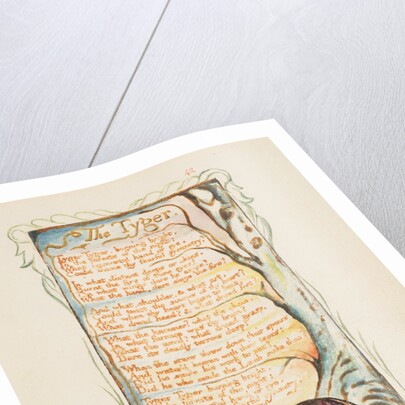 The Tyger.
Tyger Tyger, burning bright,
In the forests of the night:
What immortal hand or eye,
Could frame thy fearful symmetry?
In what distant deeps or skies,
Burnt the fire of thine eyes?
On what wings dare he aspire?
What the hand, dare sieze the fire?
And what shoulder, & what art,
Could twist the sinews of thy heart?
And when thy heart began to beat,
What dread hand? & what dread feet?
What the hammer? what the chain,
In what furnace was thy brain?
What the anvil? what dread grasp,
Dare its deadly terrors clasp?
When the stars threw down their spears
And water'd heaven with their tears:
Did he smile his work to see?
Did he who made the Lamb make thee?
Tyger Tyger burning bright,
In the forests of the night: